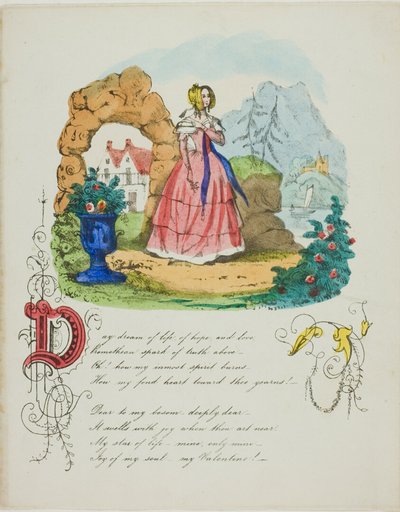 Day dream of life, of hope, and love,
Promethean spark of truth above—
Oh! how my inmost spirit burns.
How my fond heart toward thee yearns!—
Dear to my bosom—deeply dear—
It swells with joy when thou art near.
My star of life—mine, only mine—
Joy of my soul—my Valentine!—